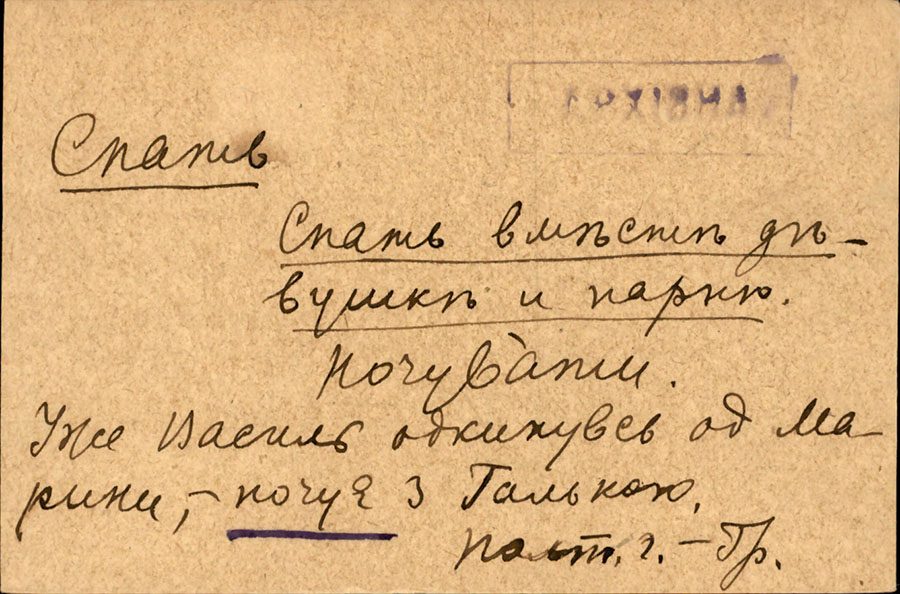 АРХІВНА
Спать
Спать вмѣстѣ дѣ-
вушкѣ и парню.
Ночувати.
Уже Василь одкинувсь од Ма-
рини, – ночує з Галькою.
Полт. г. – Гр.